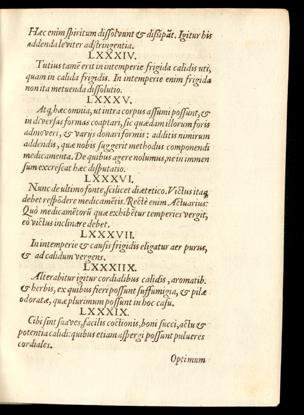 Hæc enim spiritum dissoluunt & dissipāt. Igitur his
addenda leuiter adstringentia.
LXXXIV.
Tutius tamē erit in temperie frigida calidis uti,
quam in calida frigidis. In intemperie enim frigida
non ita metuenda dissolutio.
LXXXV.
Atq; hæc omnia, ut intra corpus assumi possunt, &
in diuersas formas coaptari, sic quædam illorum foris
admoueri, & varijs donari formis: additis nimirum
addendis, quæ nobis suggerit methodus componendi
medicamenta. De quibus agere nolumus, ne in immen
sum excrescat hæc disputatio.
LXXXVI.
Nunc de ultimo fonte, scilicet diætetico. Victus itaq;
debet respōdere medicamētis. Rectè enim Actuarius:
Quò medicamētorū quæ exhibētur temperies vergit,
eò victus inclinare debet.
LXXXVII.
In intemperie & causis frigidis eligatur aer purus,
& ad calidum vergens.
LXXXIIX.
Alterabitur igitur cordialibus calidis, aromatib.
& herbis, ex quibus fieri possunt suffumigia, & pilæ
odoratæ, quæ plurimum possunt in hoc casu.
LXXXIX.
Cibi sint suaues, facilis coctionis, boni succi, actu &
potentia calidi: quibus etiam aspergi possunt pulueres
cordiales.
Optimum